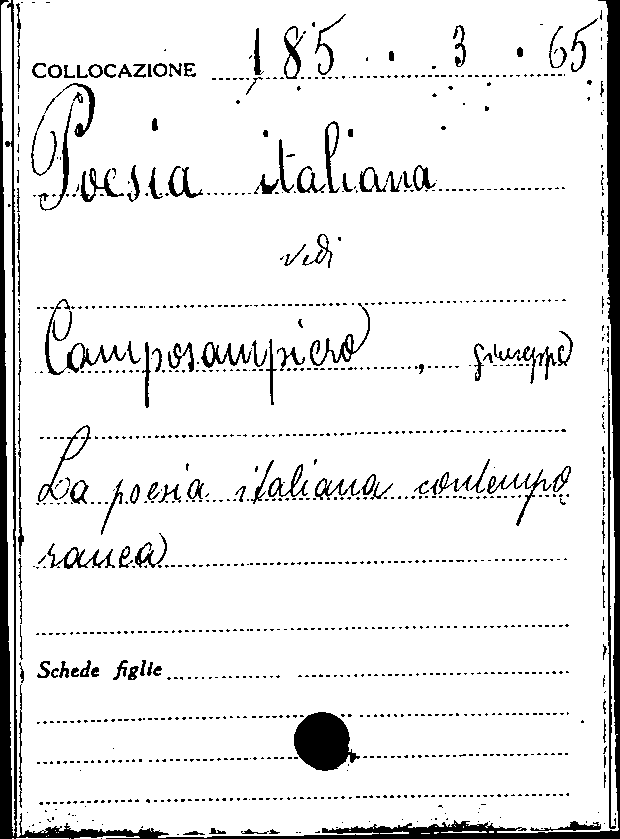 COLLOCAZIONE 185 . 3 . 65
Poesia italiana
vedi
Camposampiero, Giuseppe
La poesia italiana contempo
ranea
Schede figlie